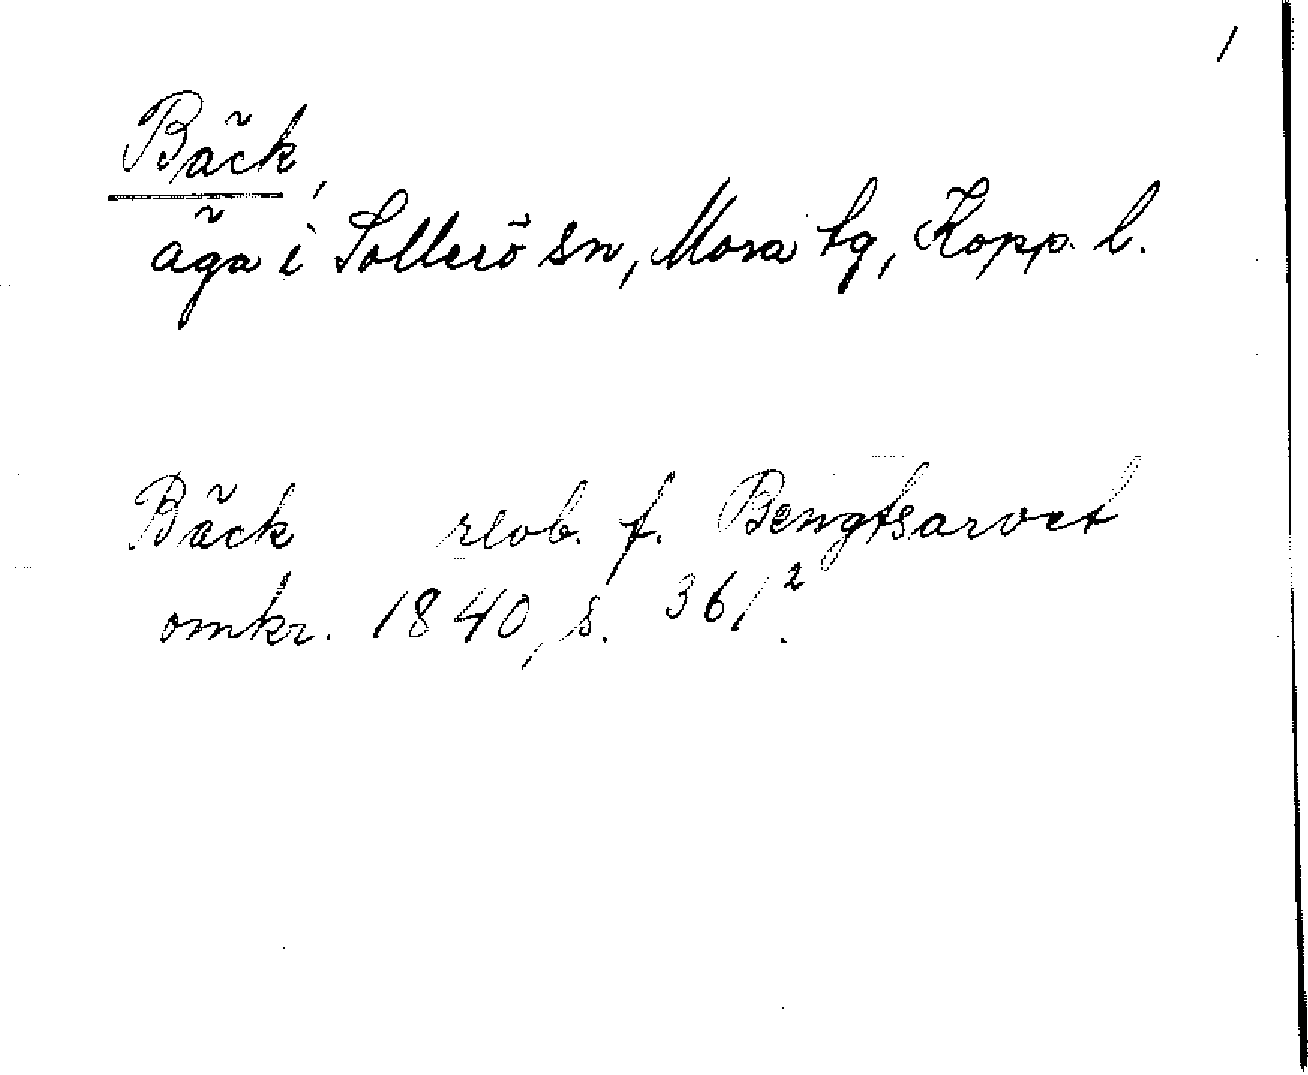 1
Bäck,
äga i Sollerö sn, Mora tg, Kopp. l.
Bäck reob. f. Bengtsarvet
omkr. 1840, s. 361².